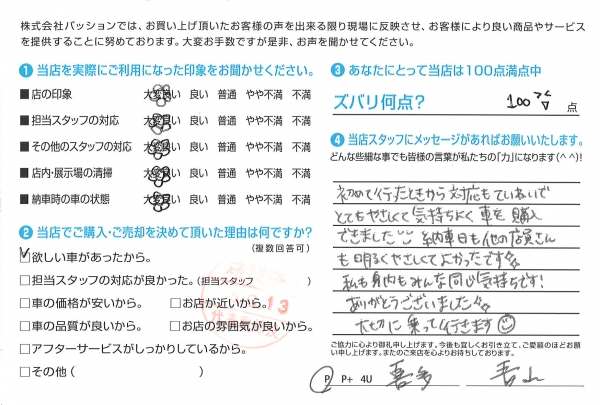 株式会社パッションでは、お買い上げ頂いたお客様の声を出来る限り現場に反映させ、お客様により良い商品やサービス
を提供することに努めております。大変お手数ですが是非、お声を聞かせてください。
① 当店を実際にご利用になった印象をお聞かせください。
■店の印象 大変良い 良い 普通 やや不満 不満
■担当スタッフの対応 大変良い 良い 普通 やや不満 不満
■その他のスタッフの対応 大変良い 良い 普通 やや不満 不満
■店内・展示場の清掃 大変良い 良い 普通 やや不満 不満
■納車時の車の状態 大変良い 良い 普通 やや不満 不満
② 当店でご購入・ご売却を決めて頂いた理由は何ですか?
(複数回答可)
☑欲しい車があったから。
□担当スタッフの対応が良かった。(担当スタッフ )
□車の価格が安いから。 □お店が近いから。
□車の品質が良いから。 □お店の雰囲気が良いから。
□アフターサービスがしっかりしているから。
□その他( )
13
③ あなたにとって当店は100点満点中
ズバリ何点? 100 点
④ 当店スタッフにメッセージがあればお願いいたします。
どんな些細な事でも皆様の言葉が私たちの「力」になります(^^)!
初めて行ったときから対応もていねいで
とてもやさしくて気持ちよく車を購入
できました 納車日も他の店員さん
も明るくやさしくてよかったです
私も身内もみんな同じ気持ちです!
ありがとうございました
大切に乗って行きます
ご協力に心より御礼申し上げます。今後も宜しくお引き立て、ご愛顧のほどお願
い申し上げます。またのご来店を心よりお待ちしております。
P P+ 4U 喜多